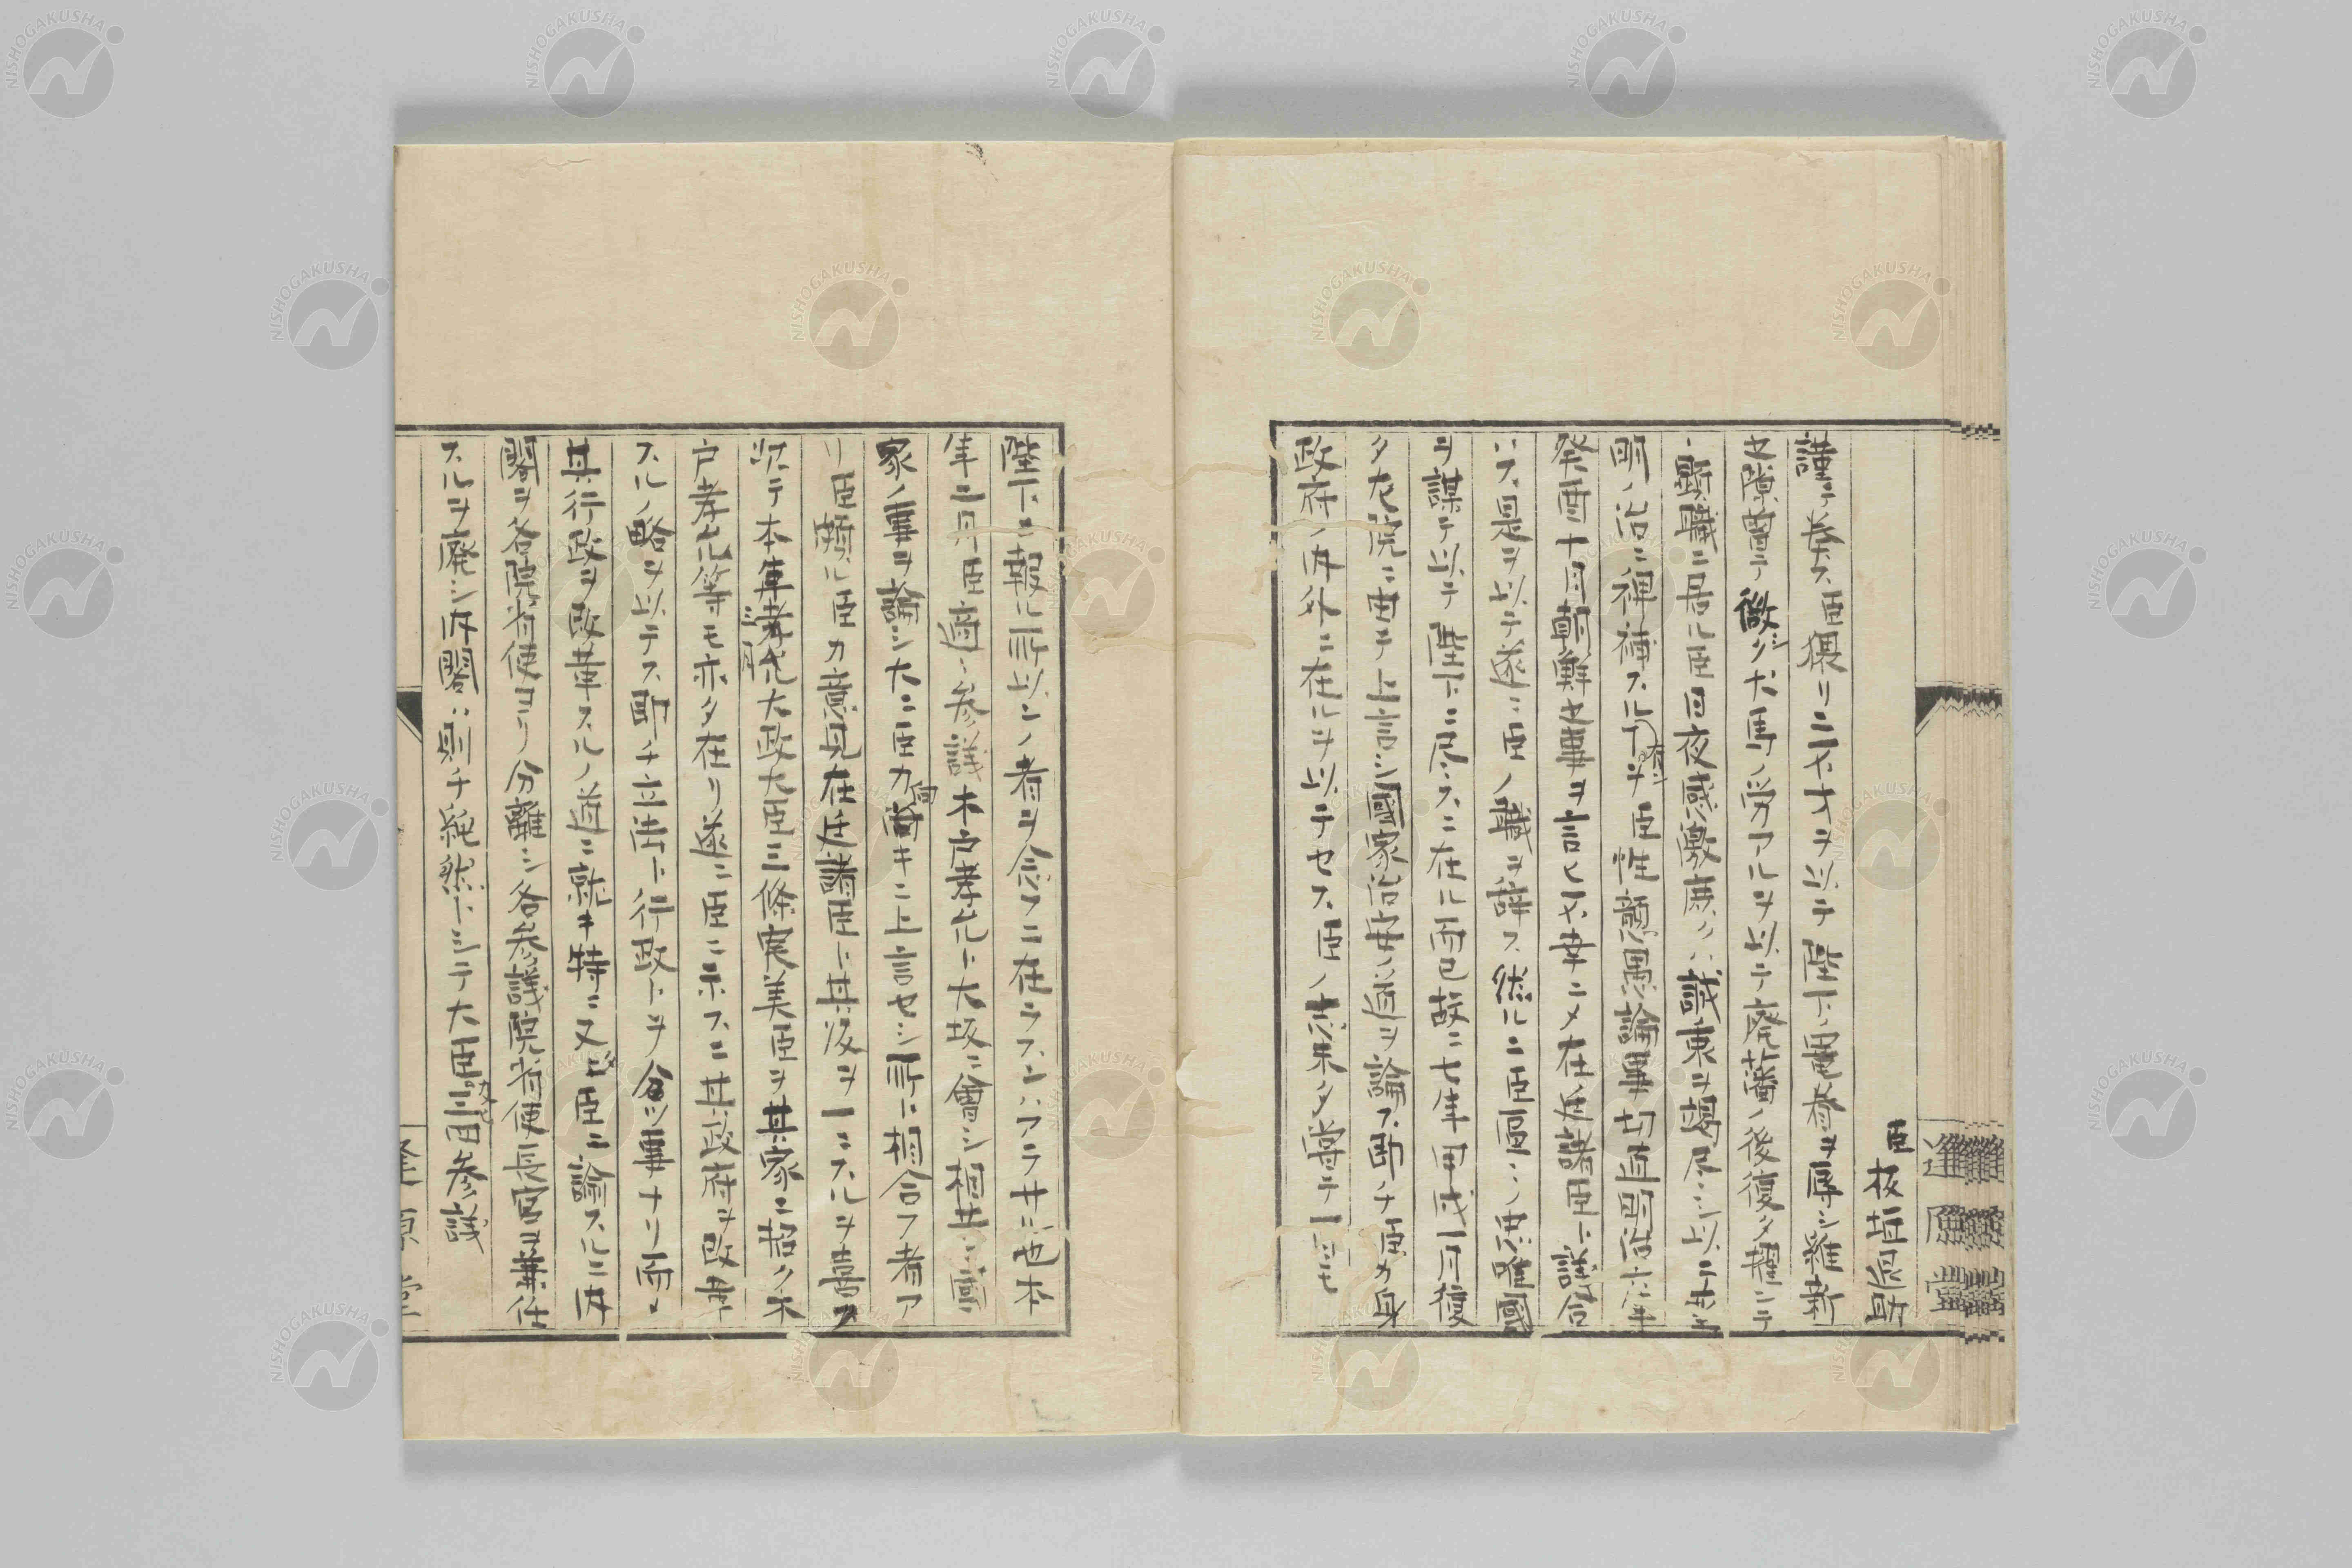 臣板垣退助
謹テ奏ス臣猥リニ不才ヲ以テ陛下ノ寵眷ヲ辱シ維新
ノ際嘗テ微力犬馬ノ労アルヲ以テ廃藩ノ後復タ擢ンテ
顕職ニ居ル臣日夜感激庶クハ誠衷ヲ竭尽シ以テ聖
明ノ治ニ裨補スル有ンヲ臣性頑愚論事切直明治六年
癸酉十月朝鮮ノ事ヲ言ヒ不幸ニメ在廷諸臣ト議合
ハス是ヲ以テ遂ニ臣ノ職ヲ辞ス然ルニ臣区々ノ衷唯国
ヲ謀テ以テ陛下ニ尽スニ在ル而已故ニ七年甲戌一月復
タ左院ニ書ヲ上言シ國家治安ノ道ヲ論ス即チ臣カ身
政府ノ内外ニ在ルヲ以テセス臣ノ志未タ嘗テ一日モ
陛下ニ報ル所以ンノ者ヲ念フニ在ラスンハアラサル也本
年二月臣適々参議木戸孝允ト大坂ニ會シ相共ニ國
家ノ事ヲ論シ大ニ臣カ嚮キニ上言セシ所ト相合フ者ア
リ臣頗ル臣カ意見在廷諸臣ト其後ヲ一ニスルヲ喜フ
次テ本年三月太政大臣三條実美臣ヲ其家ニ招ク木
戸孝允等モ亦タ在リ遂ニ臣ニ示スニ其政府ヲ改革
スルノ略ヲ以テス即チ立法ト行政トヲ分ツ事ナリ而シ
其行政ヲ改革スルノ道ニ就キ特ニ又臣ニ諭スルニ内
閣ヲ各院省使ヨリ分離シ各参議院省使長官ヲ兼任
スルヲ廃シ内閣ハ則チ純然トシテ大臣参議
進原堂